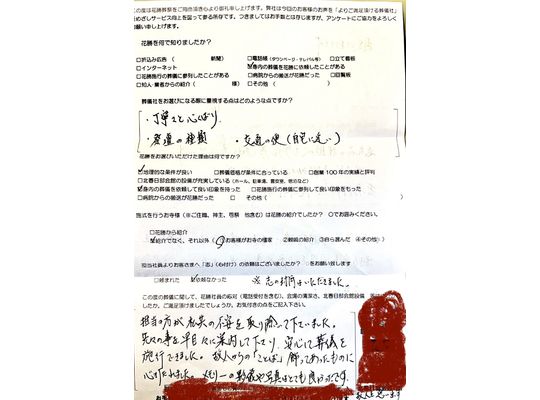 この度は花勝葬祭をご用命頂き心より御礼申し上げます。弊社は今回のお客様のお声を「よりご満足頂ける葬儀社」
をめざしサービス向上を図って参る所存です。つきましてはお手数とは存じますが、アンケートにご協力をよろしく
お願い申し上げます。
花勝を何で知りましたか？
□折込み広告（ 新聞） □電話帳（タウンページ・テレパル等） □立て看板
□インターネット ☑身内の葬儀を花勝に依頼したことがある
□花勝施行の葬儀に参列したことがある □病院からの搬送が花勝だった □回覧板
□知人・業者からの紹介（ 様） □その他（ ）
葬儀社をお選びになる際に重視する点はどのような点ですか？
・丁寧さと心くばり
・祭壇の種類 ・交通の便（自宅に近い）
花勝をお選びいただけた理由は何ですか？
☑地理的な条件が良い □葬儀価格が条件に合っている □創業100年の実績と評判
□北春日部会館の設備が充実している（ホール、駐車場、霊安室、宿泊など）
☑身内の葬儀を依頼して良い印象を持った □花勝施行の葬儀に参列して良い印象をもった
□病院からの搬送が花勝だった □その他（ ）
施式を行うお寺様（※ご住職、神主、祭司 他含む）は花勝の紹介でしたか？ ○でお囲みください。
□花勝から紹介
☑紹介でなく、それ以外（①お客様がお寺の檀家 ②親戚の紹介 ③自ら選んだ ④その他 ）
担当社員よりお客様さまへ「志」（心付け）の依頼はございましたか？ をお願い致します
□頼まれた ☑依頼なかった ※志の封筒はいただきました。
この度の葬儀に関して、花勝社員の応対（電話受付を含む）、会場の清潔さ、北春日部会館設備
したか、ご満足頂けましたでしょうか。お気付きの点をご記入下さい。
担当の方が私共の不安を取り除いて下さいました。
先々の事を早目々に案内して下さり、安心して葬儀を
施行できました。故人からの「ことば」飾ってあったものに
心打たれました。メモリーの動画や写真はとても良かったです。
故人と思います